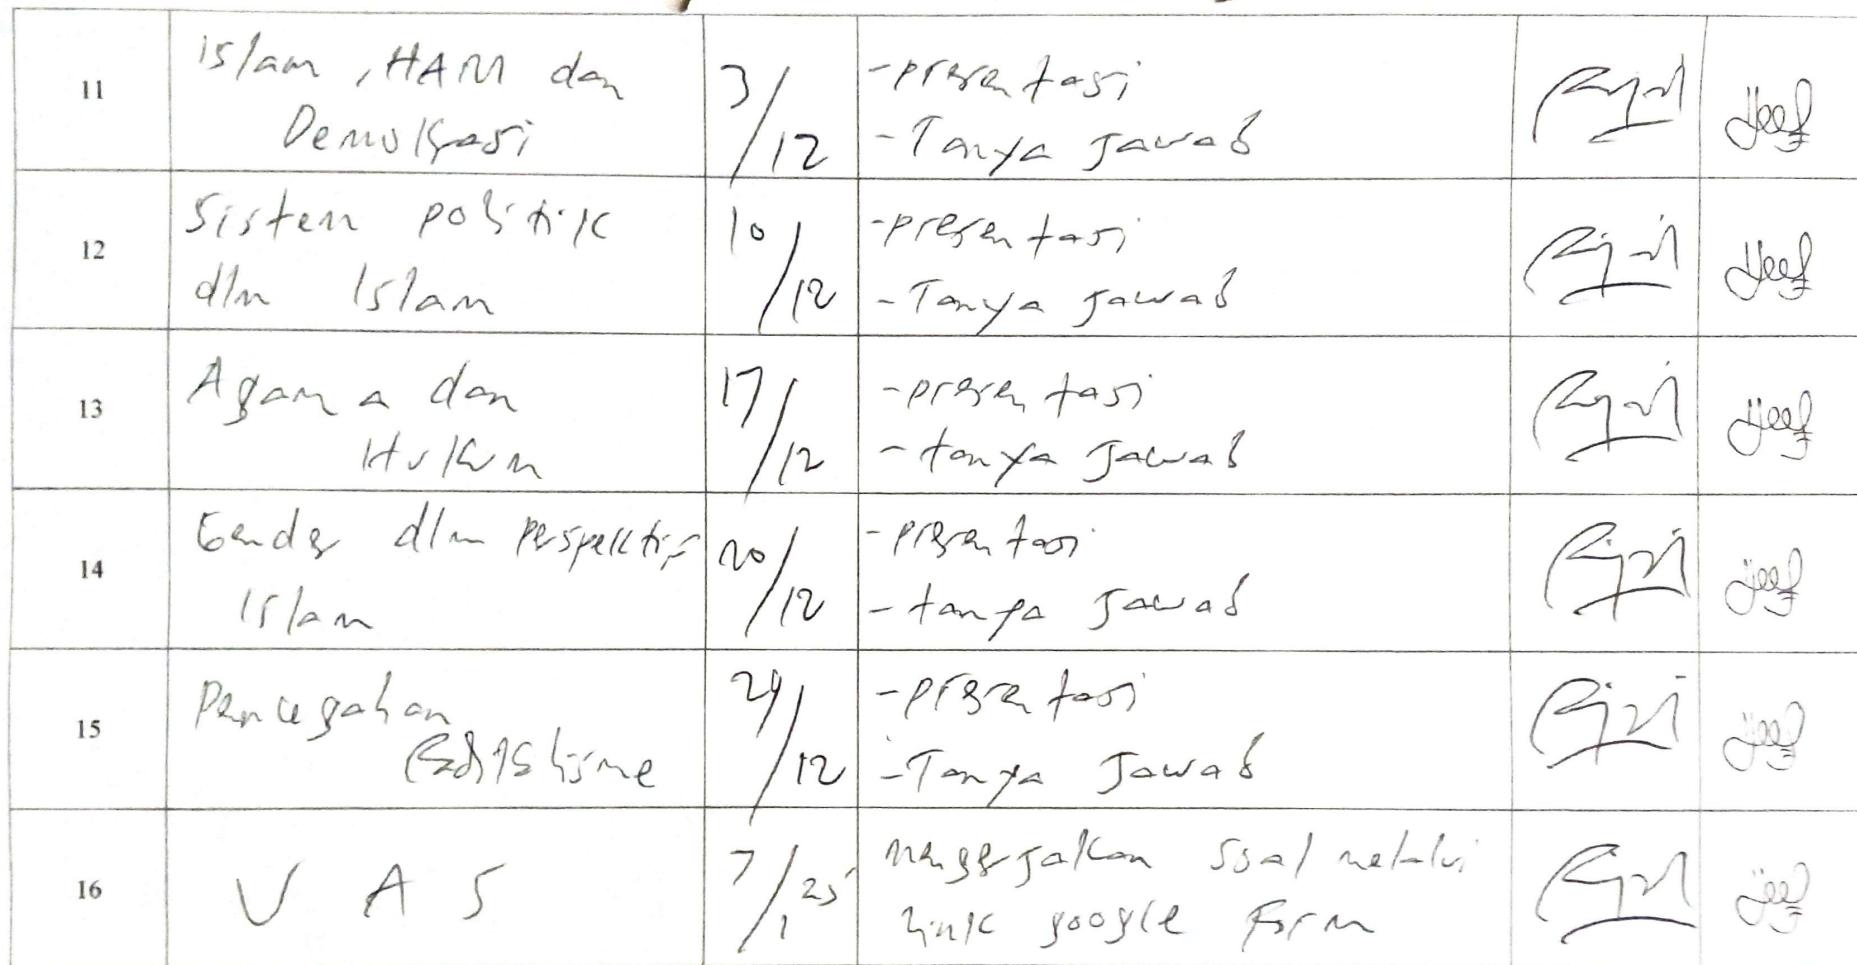 11
Islam, HAM dan
Demokrasi
3/12
- presentasi
- Tanya Jawab
12
Sistem politik
dlm Islam
10/12
- presentasi
- Tanya Jawab
13
Agama dan
Hukum
17/12
- presentasi
- tanya Jawab
14
Gender dlm perspektif
Islam
20/12
- presentasi
- tanya Jawab
15
Pencegahan
Radikalisme
24/12
- presentasi
- Tanya Jawab
16
UAS
7/1 25
mengerjakan soal melalui
link google Form